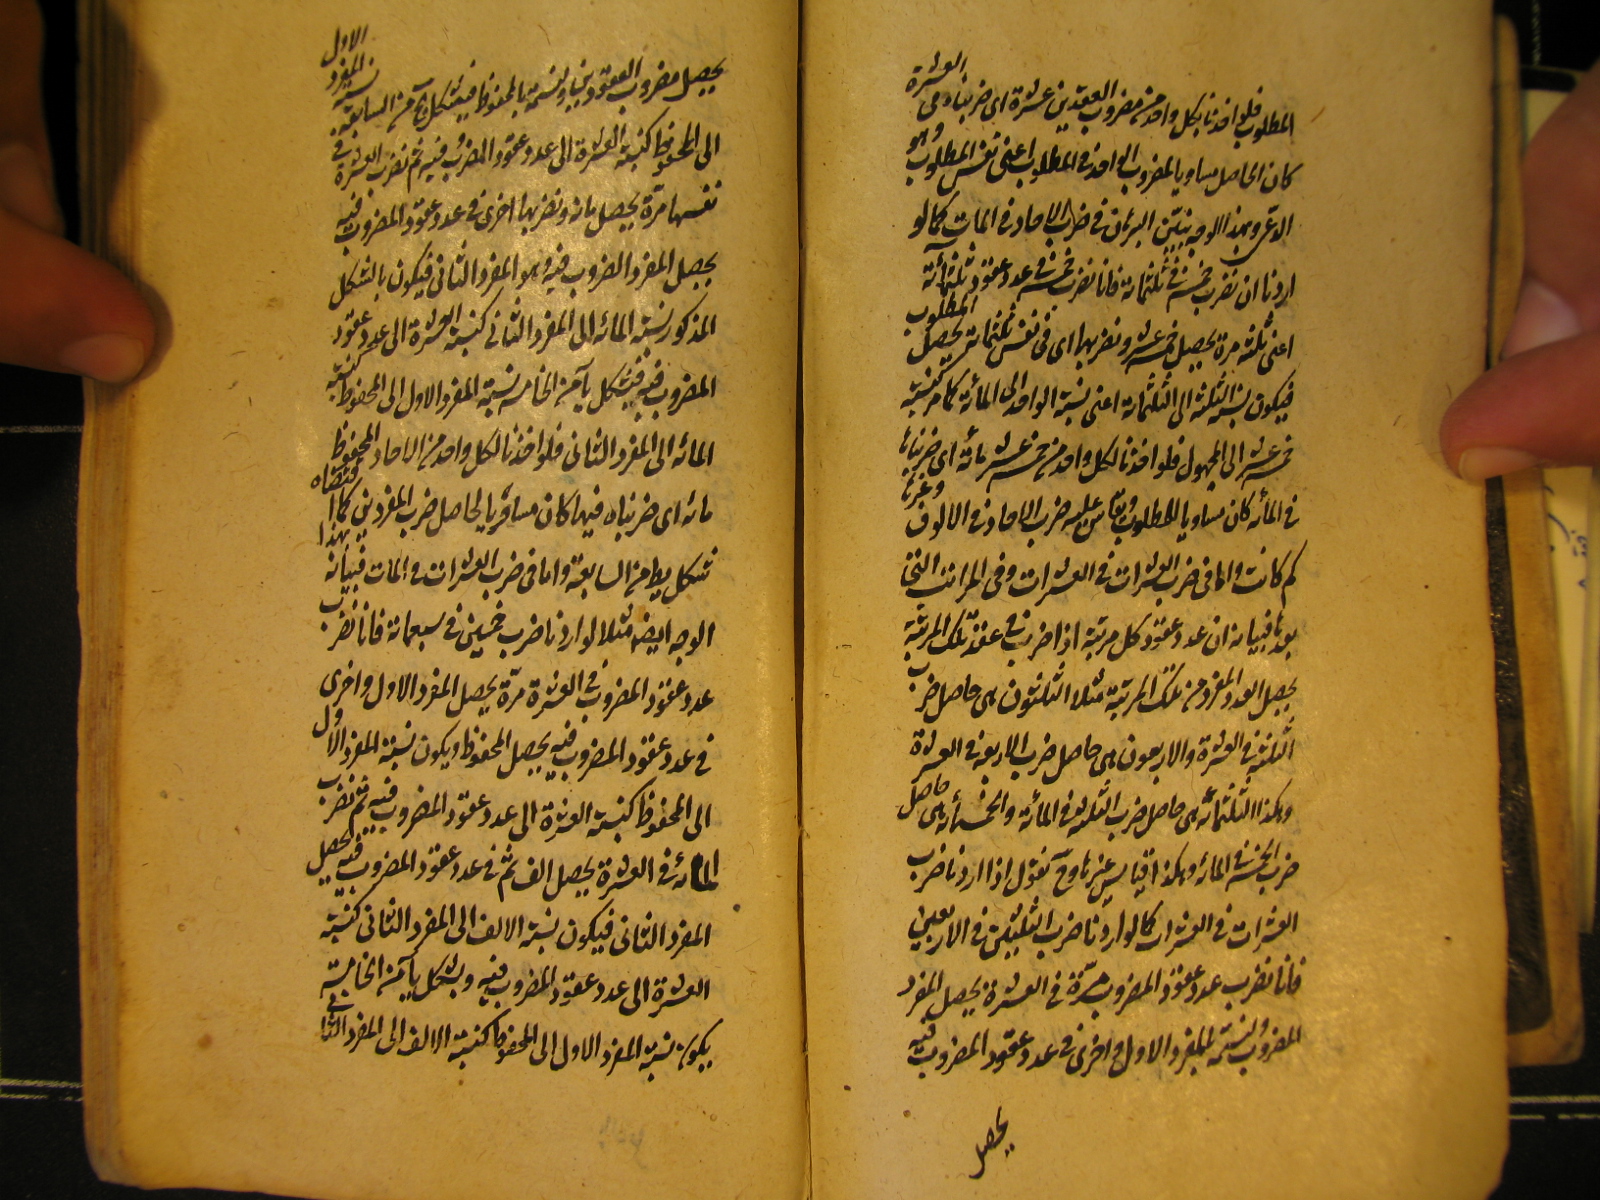 المطلوب فلو اخذنا بكل واحد من مضروب العقدين عشرة اى ضربناه فى العشرة
كان الحاصل مساويا لمضروب الواحد فى المطلوب اعنى نفس المطلوب وهو
المدعى وبهذا الوجه يتبين البرهان فى ضرب الاحاد فى المات كما لو
اردنا ان نضرب خمسة فى ثلثمائة فانا نضرب خمسة فى عدد عقود ثلثمائة
اعنى ثلثة مرة يحصل خمسة عشر ونضربها اى فى نفس ثلثمائة يحصل المطلوب
فيكون نسبة الثلثة الى الثلثمائة اعنى نسبة الواحد الى المائة كما مر كنسبة
خمسة عشر الى المجهول فلو اخذنا لكل واحد من خمسة عشر مائة اى ضربناها
فى المائة كان مساويا للمطلوب وقس عليه ضرب الاحاد فى الالوف وغيرها
كم كانت واما فى ضرب العشرات فى العشرات وفى المراتب التى
بعدها فبيانه ان عدد عقود كل مرتبة اذا ضرب فى عقد تلك المرتبة
يحصل العدد المفرد من تلك المرتبة مثلا الثلثون هى حاصل ضرب
الثلثة فى العشرة والاربعون هى حاصل ضرب الاربعة فى العشرة
وهكذا الثلثمائة هى حاصل ضرب الثلثة فى المائة والخمسمائة هى حاصل
ضرب الخمسة فى المائة وهكذا قياس غيرها وح نقول اذا اردنا ضرب
العشرات فى العشرات كما لو اردنا ضرب الثلثين فى الاربعين
فانا نضرب عدد عقود المضروب مرة فى العشرة يحصل المفرد
المضروب ونسميه بالمفرد الاول واخرى فى عدد عقود المضروب فيه
يحصل
يحصل مضروب العقودين ونسميه بالمحفوظ فبشكل يح من السابعة نسبة المفرد الاول
الى المحفوظ كنسبة العشرة الى عدد عقود المضروب فيه ثم نضرب العشرة فى
نفسها مرة يحصل مائة ونضربها اخرى فى عدد عقود المضروب فيه
يحصل المفرد المضروب فيه وهو المفرد الثانى فيكون بالشكل
المذكور نسبة المائة الى المفرد الثانى كنسبة العشرة الى عدد عقود
المضروب فيه فبشكل يا من الخامسة نسبة المفرد الاول الى المحفوظ كنسبة
المائة الى المفرد الثانى فلو اخذنا لكل واحد من الاحاد المحفوظ
مائة اى ضربناه فيها كان مساويا لحاصل ضرب المفردين كما اقتضاه
شكل يط من السابعة واما فى ضرب العشرات فى المات فبيانه بهذا
الوجه ايضا مثلا لو اردنا ضرب خمسين فى سبعمائة فانا نضرب
عدد عقود المضروب فى العشرة مرة يحصل المفرد الاول واخرى
فى عدد عقود المضروب فيه يحصل المحفوظ ويكون نسبة المفرد الاول
الى المحفوظ كنسبة العشرة الى عدد عقود المضروب فيه ثم نضرب
المائة فى العشرة يحصل الف ثم فى عدد عقود المضروب فيه يحصل
المفرد الثانى فيكون نسبة الالف الى المفرد الثانى كنسبة
العشرة الى عدد عقود المضروب فيه وبشكل يا من الخامسة
يكون نسبة المفرد الاول الى المحفوظ كنسبة الالف الى المفرد الثانى